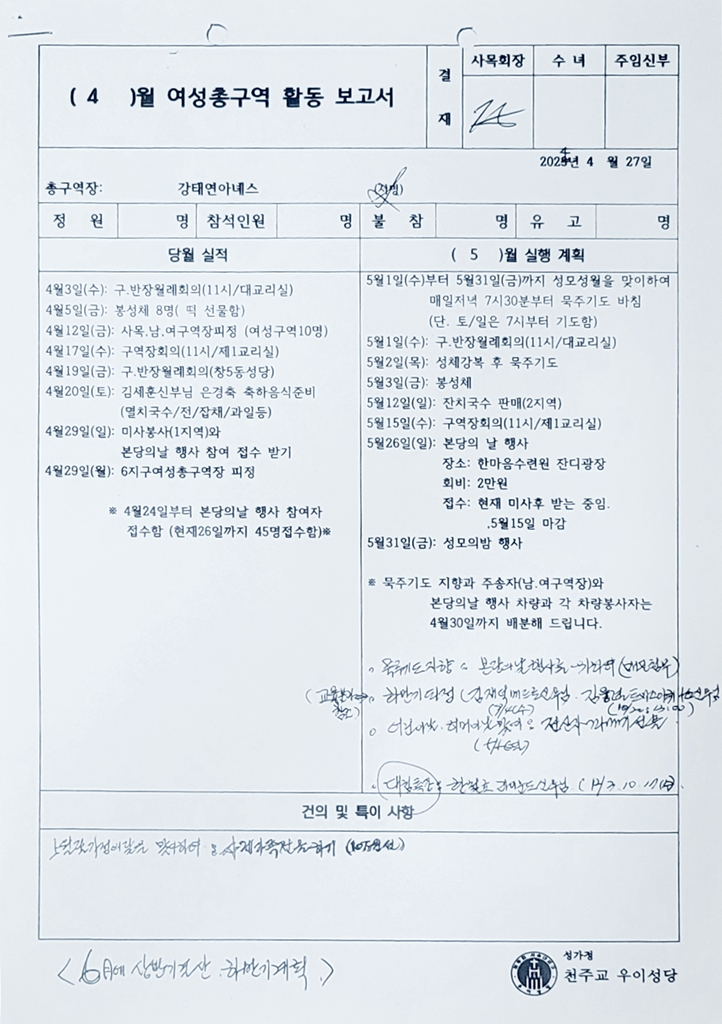 ( 4 )월 여성총구역 활동 보고서
결 재
사목회장 수 녀 주임신부
2024년 4 월 27일
총구역장: 강태연아녜스
정 원 명 참석인원 명 불 참 명 유 고 명
당월 실적
4월3일(수): 구.반장월례회의(11시/대교리실)
4월5일(금): 봉성체 8명( 떡 선물함)
4월12일(금): 사목.남.여구역장피정 (여성구역10명)
4월17일(수): 구역장회의(11시/제1교리실)
4월19일(금): 구.반장월례회의(창5동성당)
4월20일(토): 김세훈신부님 은경축 축하음식준비
(멸치국수/전/잡채/과일등)
4월29일(일): 미사봉사(1지역)와
본당의날 행사 참여 접수 받기
4월29일(월): 6지구여성총구역장 피정
※ 4월24일부터 본당의날 행사 참여자
접수함 (현재26일까지 45명접수함)※
( 5 )월 실행 계획
5월1일(수)부터 5월31일(금)까지 성모성월을 맞이하여
매일저녁 7시30분부터 묵주기도 바침
(단. 토/일은 7시부터 기도함)
5월1일(수): 구.반장월례회의(11시/대교리실)
5월2일(목): 성체강복 후 묵주기도
5월3일(금): 봉성체
5월12일(일): 잔치국수 판매(2지역)
5월15일(수): 구역장회의(11시/제1교리실)
5월26일(일): 본당의 날 행사
장소: 한마음수련원 잔디광장
회비: 2만원
접수: 현재 미사후 받는 중임.
.5월15일 마감
5월31일(금): 성모의밤 행사
※ 묵주기도 지향과 주송자(남.여구역장)와
본당의날 행사 차량과 각 차량봉사자는
4월30일까지 배분해 드립니다.
묵주기도지향 : 본당의날 행사를
하반기
건의 및 특이 사항
<6月에 상반기결산.하반기계획.>
성가정
천주교 우이성당